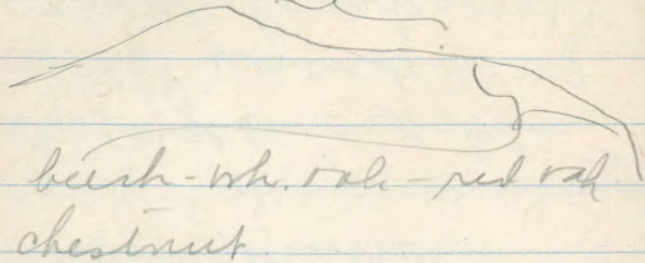 beech - wh. oak - red oak
chestnut.